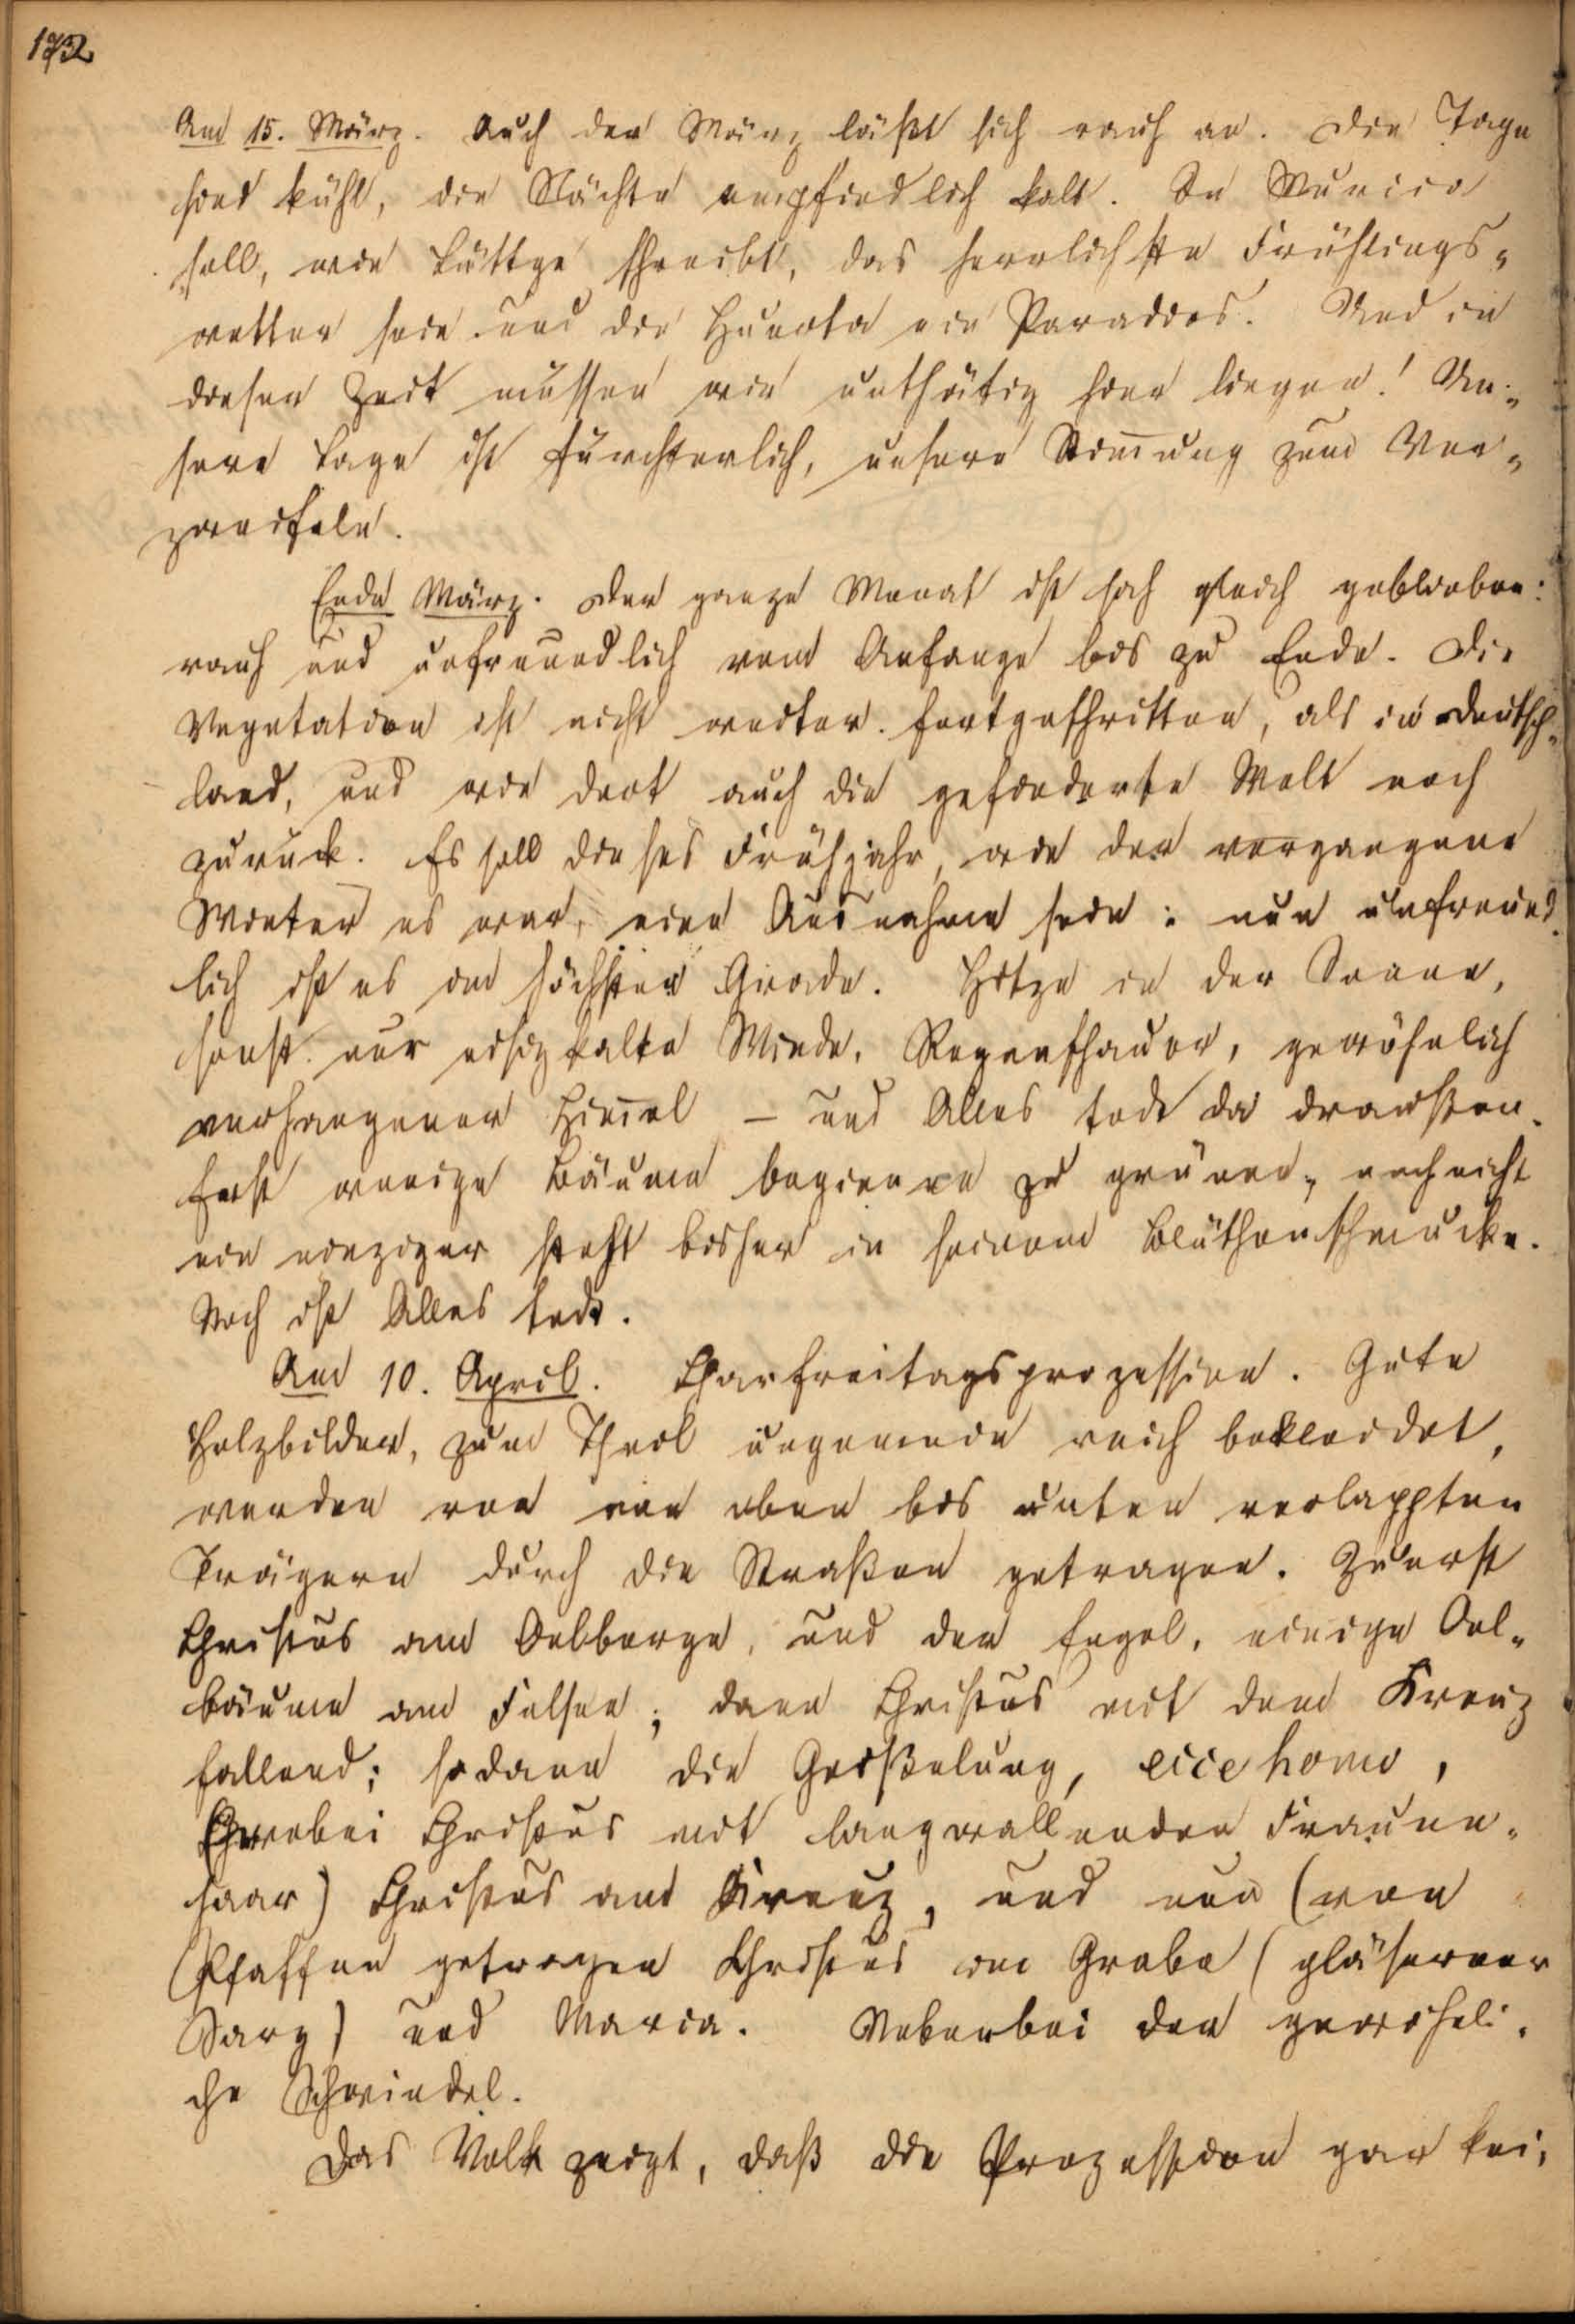 172
Am 15. März. Auch der März läßt sich rauh an. Die Tage
sind kühl, die Nächte empfindlich kalt. In Murcia
soll, wie Lüttge schreibt, das herrlichste Frühlings-
wetter sein und die Huerta ein Paradies. Und in
dieser Zeit müssen wir unthätig hier liegen! Un-
sere Lage ist fürchterlich, unsere Stimmung zum Ver-
zweifeln.
Ende März. Der ganze Monat ist sich gleich geblieben:
rauh und unfreundlich vom Anfange bis zu Ende. Die
Vegetation ist nicht weiter fortgeschritten, als in Deutsch-
land, und wie dort auch die gefiederte Welt noch
zurück. Es soll dieses Frühjahr, wie der vergangene
Winter es war, eine Ausnahme sein: nun unfreund-
lich ist es im höchsten Grade. Hitze in der Sonne,
sonst nur eisig kalte Winde, Regenschauer, gewöhnlich
verhangener Himmel – und Alles todt da draußen.
Erst wenige Bäume beginnen zu grünen, noch nicht
ein einziger steht bisher in seinem Blüthenschmucke.
Noch ist Alles todt.
Am 10. April. Charfreitagsprozession. Gute
Holzbilder, zum Theil ungemein reich bekleidet,
werden von von oben bis unten verlappten
Trägern durch die Straßen getragen. Zuerst
Christus am Oelberge, und der Engel, einige Oel-
bäume am Felsen; dann Christus mit dem Kreuz
fallend; sodann die Geißelung, ecce homo,
(wobei Christus mit langwallenden Frauen-
haar) Christus am Kreuz, und nun (von
Pfaffen getragen Christus im Grabe (gläserner
Sarg) und Maria. Nebenbei der gewöhnli-
che Schwindel.
Das Volk zeigt, daß die Prozession gar kei-